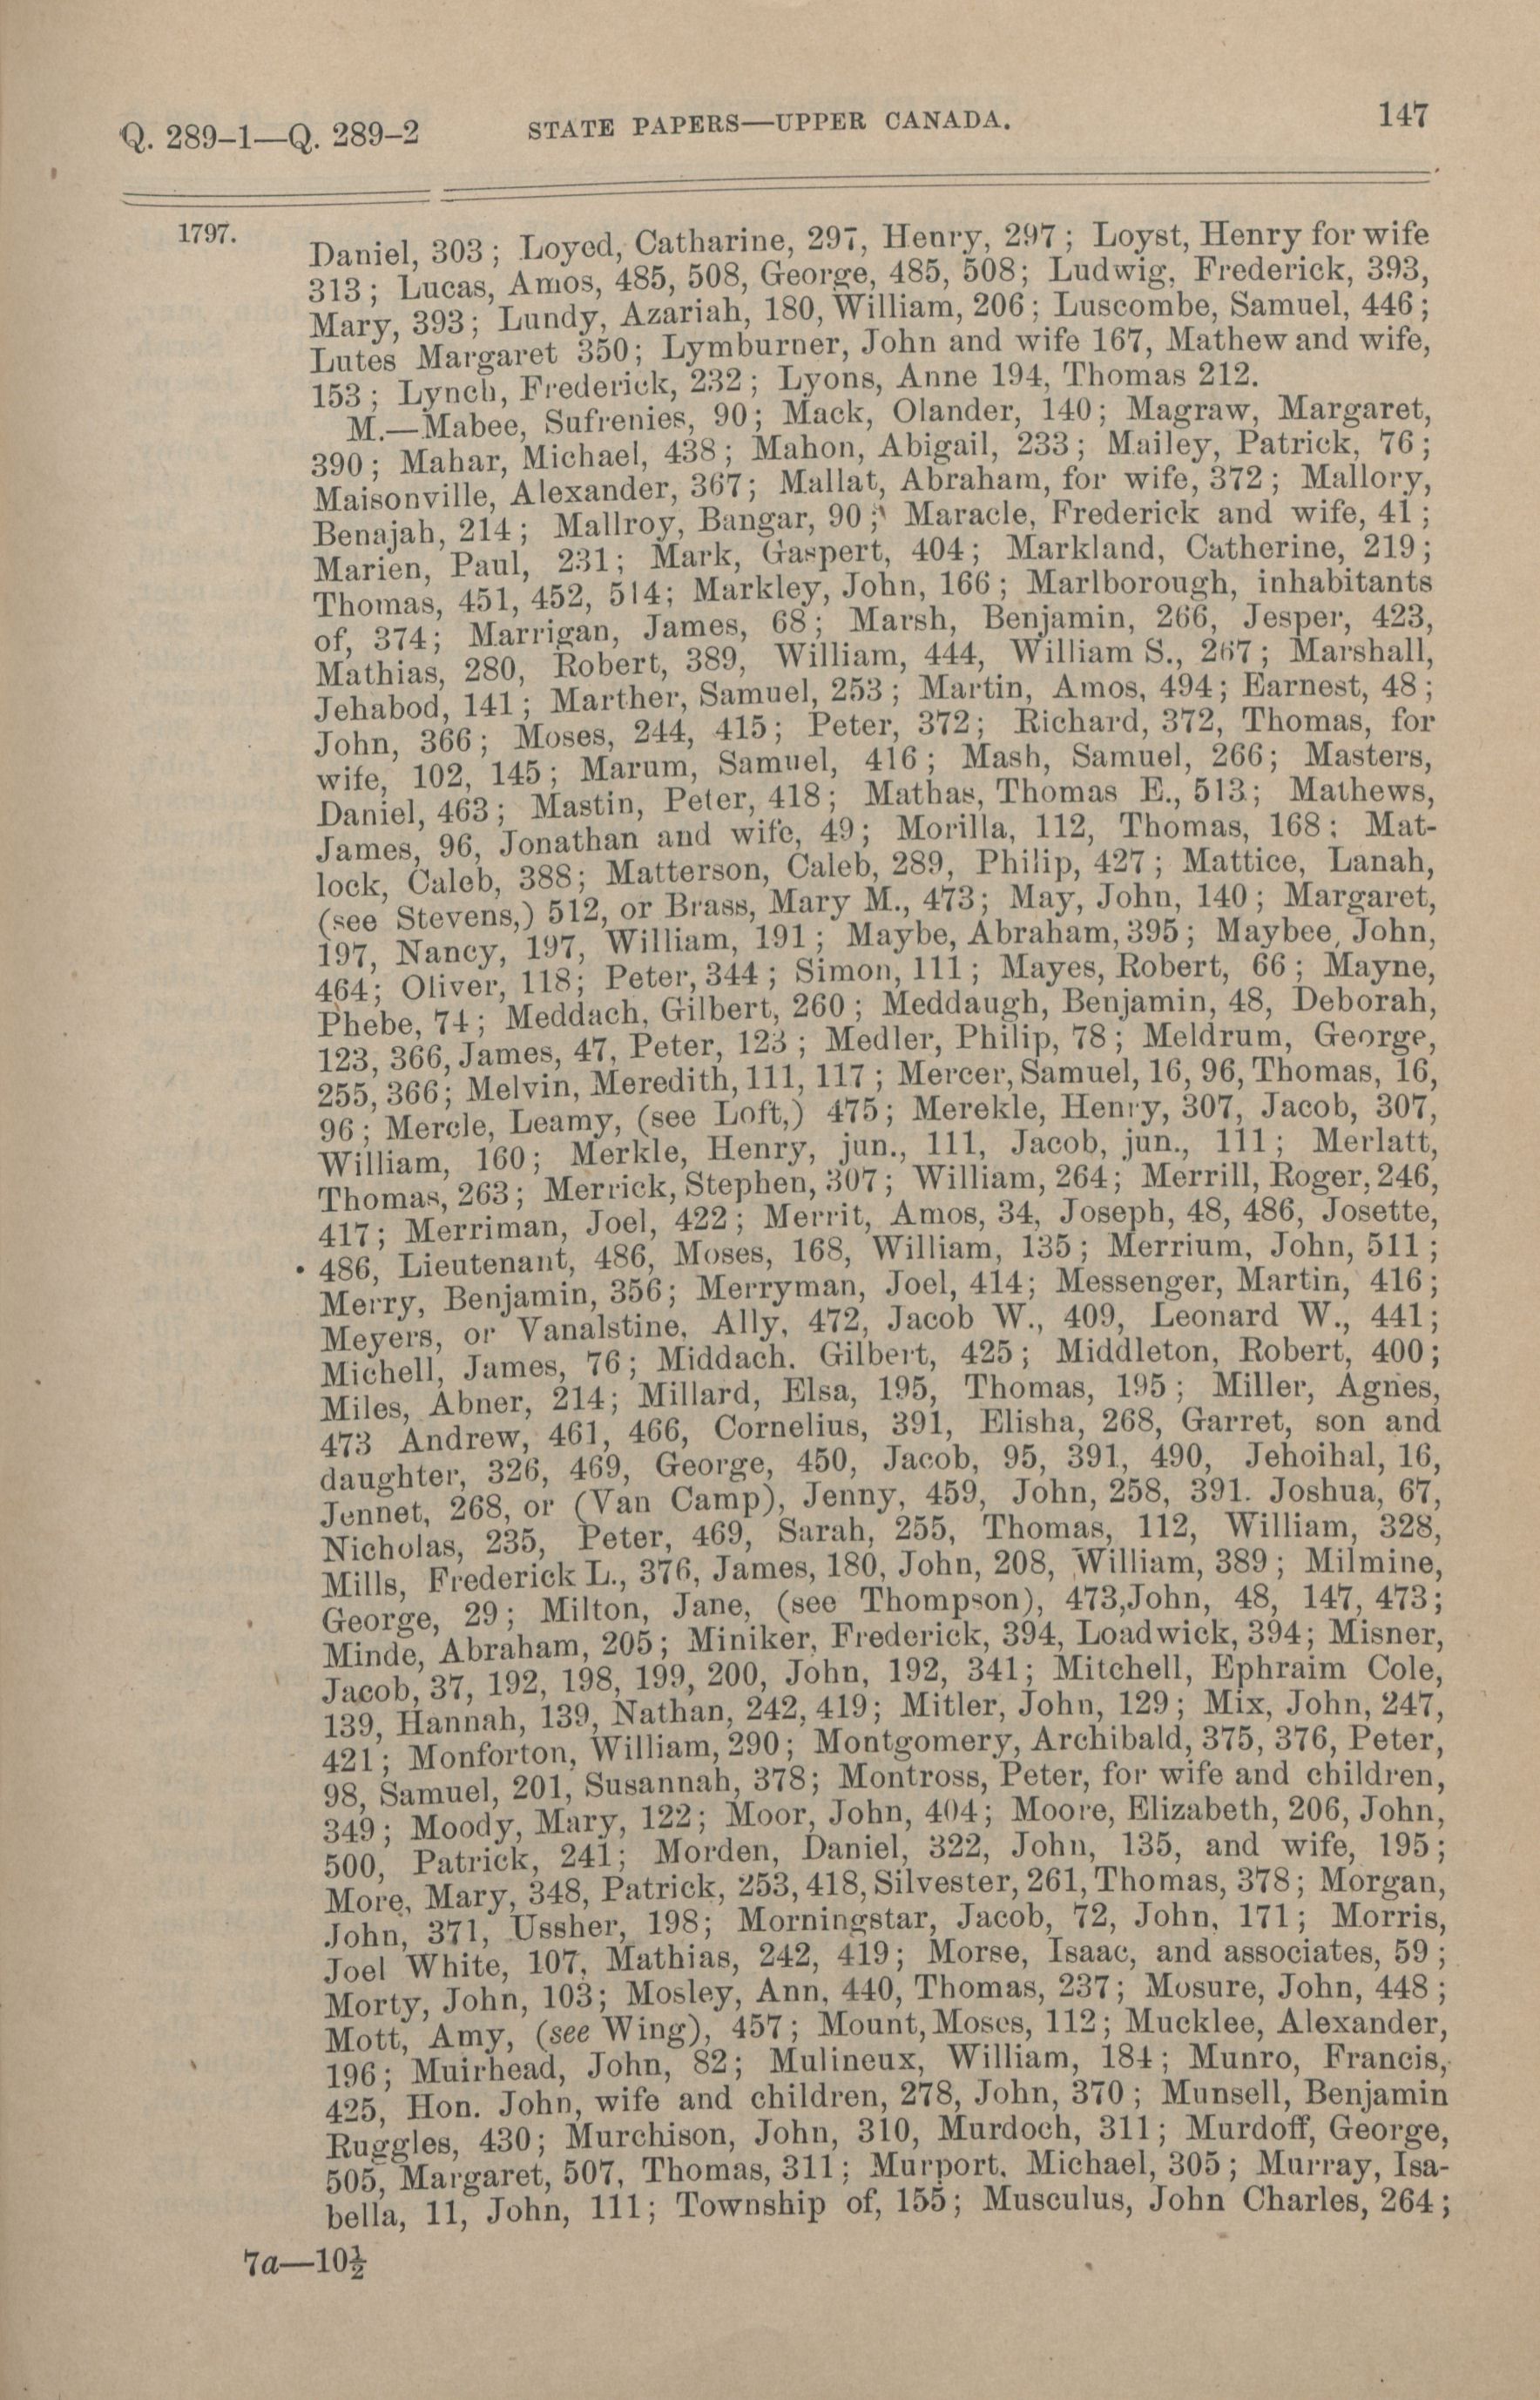 Q. 289-1—Q. 289-2 STATE PAPERS—UPPER CANADA. 147
1797.
Daniel, 303; Loyed, Catharine, 297, Henry, 297; Loyst, Henry for wife
313; Lucas, Amos, 485, 508, George, 485, 508; Ludwig, Frederick, 393,
Mary, 393; Lundy, Azariah, 180, William, 206; Luscombe, Samuel, 446;
Lutes Margaret 350; Lymburner, John and wife 167, Mathew and wife,
153; Lynch, Frederick, 232; Lyons, Anne 194, Thomas 212.
M.—Mabee, Sufrenies, 90; Mack, Olander, 140; Magraw, Margaret,
390; Mahar, Michael, 438; Mahon, Abigail, 233; Mailey, Patrick, 76;
Maisonville, Alexander, 367; Mallat, Abraham, for wife, 372; Mallory,
Benajah, 214; Mallroy, Bangar, 90; Maracle, Frederick and wife, 41;
Marien, Paul, 231; Mark, Gaspert, 404; Markland, Catherine, 219;
Thomas, 451, 452, 514; Markley, John, 166; Marlborough, inhabitants
of, 374; Marrigan, James, 68; Marsh, Benjamin, 266, Jesper, 423,
Mathias, 280, Robert, 389, William, 444, William S., 267; Marshall,
Jehabod, 141; Marther, Samuel, 253; Martin, Amos, 494; Earnest, 48;
John, 366; Moses, 244, 415; Peter, 372; Richard, 372, Thomas, for
wife, 102, 145; Marum, Samuel, 416; Mash, Samuel, 266; Masters,
Daniel, 463; Mastin, Peter, 418; Mathas, Thomas E., 513; Mathews,
James, 96, Jonathan and wife, 49; Morilla, 112, Thomas, 168; Mat-
lock, Caleb, 388; Matterson, Caleb, 289, Philip, 427; Mattice, Lanah,
(see Stevens,) 512, or Brass, Mary M., 473; May, John, 140; Margaret,
197, Nancy, 197, William, 191; Maybe, Abraham, 395; Maybee, John,
464; Oliver, 118; Peter, 344; Simon, 111; Mayes, Robert, 66; Mayne,
Phebe, 74; Meddach, Gilbert, 260; Meddaugh, Benjamin, 48, Deborah,
123, 366, James, 47, Peter, 123; Medler, Philip, 78; Meldrum, George,
255, 366; Melvin, Meredith, 111, 117; Mercer, Samuel, 16, 96, Thomas, 16,
96; Mercle, Leamy, (see Loft,) 475; Merekle, Henry, 307, Jacob, 307,
William, 160; Merkle, Henry, jun., 111, Jacob, jun., 111; Merlatt,
Thomas, 263; Merrick, Stephen, 307; William, 264; Merrill, Roger, 246,
417; Merriman, Joel, 422; Merrit, Amos, 34, Joseph, 48, 486, Josette,
486, Lieutenant, 486, Moses, 168, William, 135; Merrium, John, 511;
Merry, Benjamin, 356; Merryman, Joel, 414; Messenger, Martin, 416;
Meyers, or Vanalstine, Ally, 472, Jacob W., 409, Leonard W., 441;
Michell, James, 76; Middach. Gilbert, 425; Middleton, Robert, 400;
Miles, Abner, 214; Millard, Elsa, 195, Thomas, 195; Miller, Agnes,
473 Andrew, 461, 466, Cornelius, 391, Elisha, 268, Garret, son and
daughter, 326, 469, George, 450, Jacob, 95, 391, 490, Jehoihal, 16,
Jennet, 268, or (Van Camp), Jenny, 459, John, 258, 391. Joshua, 67,
Nicholas, 235, Peter, 469, Sarah, 255, Thomas, 112, William, 328,
Mills, Frederick L., 376, James, 180, John, 208, William, 389; Milmine,
George, 29; Milton, Jane, (see Thompson), 473,John, 48, 147, 473;
Minde, Abraham, 205; Miniker, Frederick, 394, Loadwick, 394; Misner,
Jacob, 37, 192, 198, 199, 200, John, 192, 341; Mitchell, Ephraim Cole,
139, Hannah, 139, Nathan, 242, 419; Mitler, John, 129; Mix, John, 247,
421; Monforton, William, 290; Montgomery, Archibald, 375, 376, Peter,
98, Samuel, 201, Susannah, 378; Montross, Peter, for wife and children,
349; Moody, Mary, 122; Moor, John, 404; Moore, Elizabeth, 206, John,
500, Patrick, 241; Morden, Daniel, 322, John, 135, and wife, 195;
More, Mary, 348, Patrick, 253, 418, Silvester, 261, Thomas, 378; Morgan,
John, 371, Ussher, 198; Morningstar, Jacob, 72, John, 171; Morris,
Joel White, 107, Mathias, 242, 419; Morse, Isaac, and associates, 59;
Morty, John, 103; Mosley, Ann, 440, Thomas, 237; Mosure, John, 448;
Mott, Amy, (see Wing), 457; Mount, Moses, 112; Mucklee, Alexander,
196; Muirhead, John, 82; Mulineux, William, 184; Munro, Francis,
425, Hon. John, wife and children, 278, John, 370; Munsell, Benjamin
Ruggles, 430; Murchison, John, 310, Murdoch, 311; Murdoff, George,
505, Margaret, 507, Thomas, 311; Murport. Michael, 305; Murray, Isa-
bella, 11, John, 111; Township of, 155; Musculus, John Charles, 264;
7a—10½